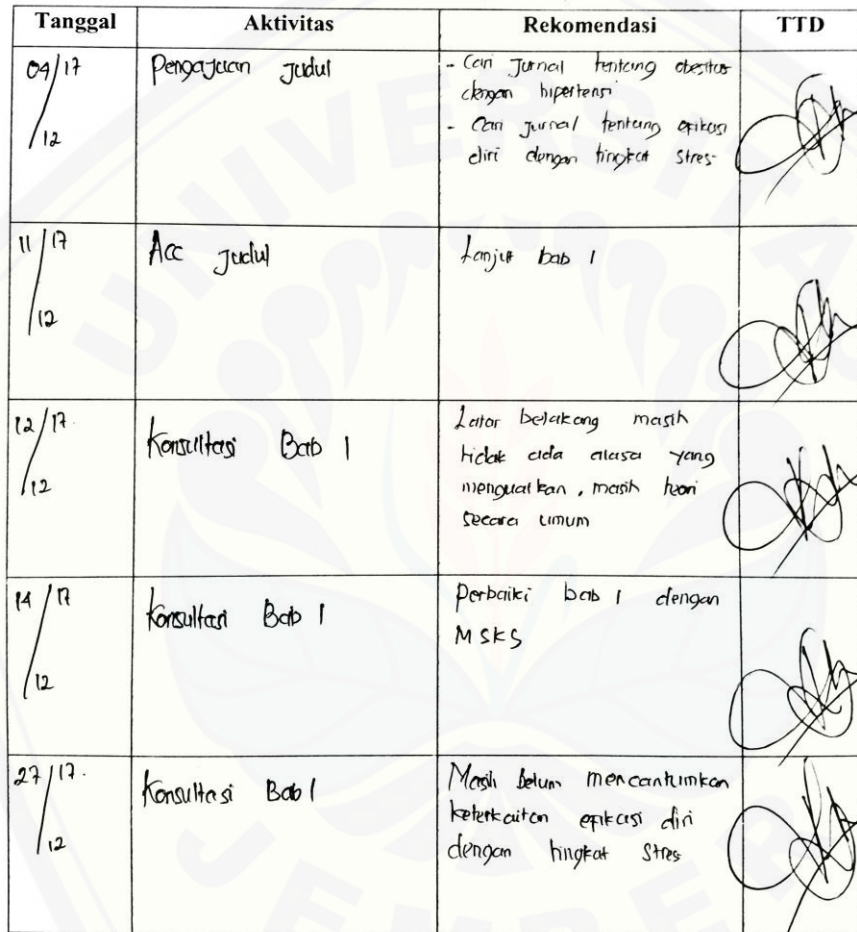 Tanggal Aktivitas Rekomendasi TTD
04/17 Pengajuan Judul - Cari Jurnal tentang obesitas
/12 dengan hipertensi
- Cari Jurnal tentang efikasi
diri dengan tingkat stres
11/17 Acc Judul Lanjut bab 1
/12
12/17 Konsultasi Bab 1 Latar belakang masih
/12 tidak ada alasa yang
menguatkan, masih teori
secara umum
14/17 Konsultasi Bab 1 Perbaiki bab 1 dengan
/12 MSKS
27/17. Konsultasi Bab 1 Masih belum mencantumkan
/12 keterkaitan efikasi diri
dengan tingkat stres
UNIVERSITAS
JEMBER